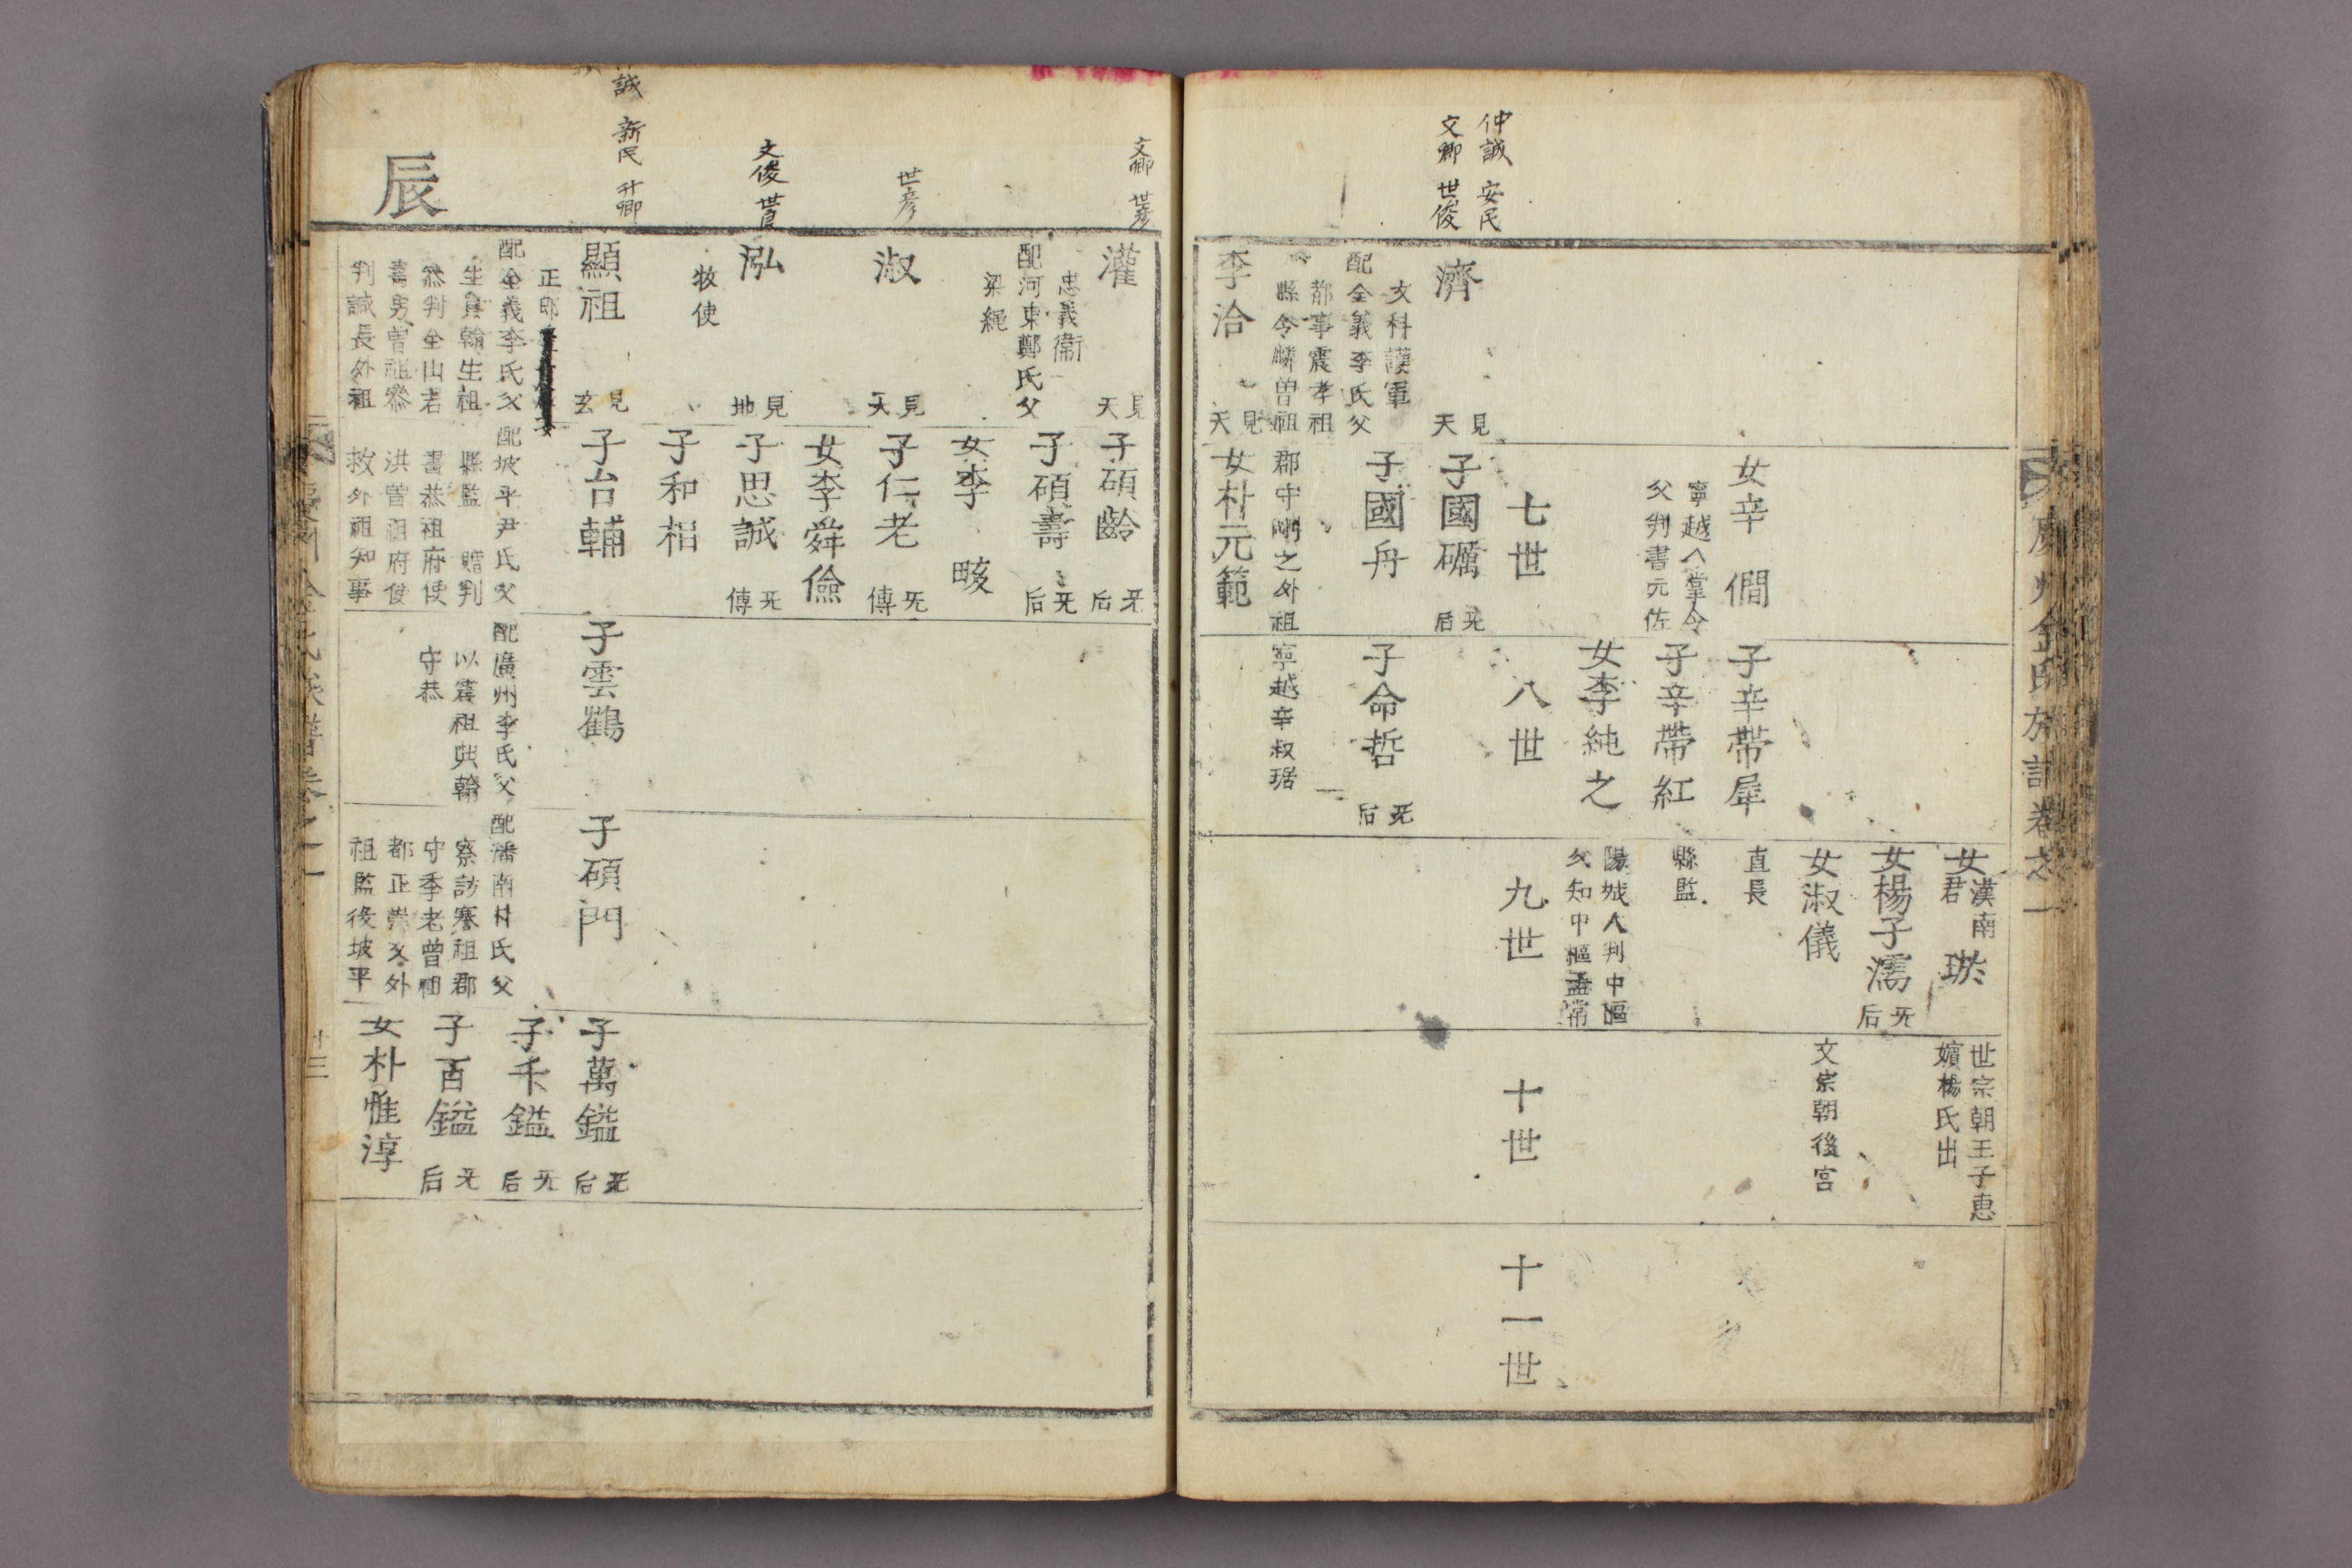 慶州金氏族譜卷之一
仲誠 安民
文卿 世俊
女辛 僩
寧越人掌令
父判書元佐
子辛帶犀
直長
子辛帶紅
縣監
女李純之
陽城人判中樞
父知中樞孟常
女漢南君 𤥽
世宗朝王子惠
嬪楊氏出
女楊子濡
无后
女淑儀
文宗朝後宮
七世
八世
九世
十世
十一世
濟
見天
文科護軍
配全義李氏父
都事震孝祖
縣令麟曽祖
郡守之外祖
寧越辛叔琚
子國礪
无后
子國舟
子命哲
无后
李洽
見天
女朴元範
文卿 世彦
灌
見天
忠義衛
配河東鄭氏父
梁繩
子碩齡
无后
子碩壽
无后
女李 晐
世彦
淑
見天
子仁老
无傳
女李舜儉
文俊 世良
泓
見地
牧使
子思誠
无傳
子和栢
誠 新民 升卿
顯祖
見玄
正郎
配全義李氏父
生員翰生祖
叅判全山君
壽男曽祖叅
判誠長外祖
子台輔
配坡平尹氏父
縣監 贈判
書恭祖府使
洪曽祖府使
救外祖知事
子雲鶴
配廣州李氏父
以震祖典翰
守恭
子碩門
配潘南朴氏父
察訪謇祖郡
守季老曽祖
都正崇父外
祖監役坡平
子萬鎰
无后
子千鎰
无后
子百鎰
无后
女朴惟淳
辰
慶州金氏族譜卷之一
廿三